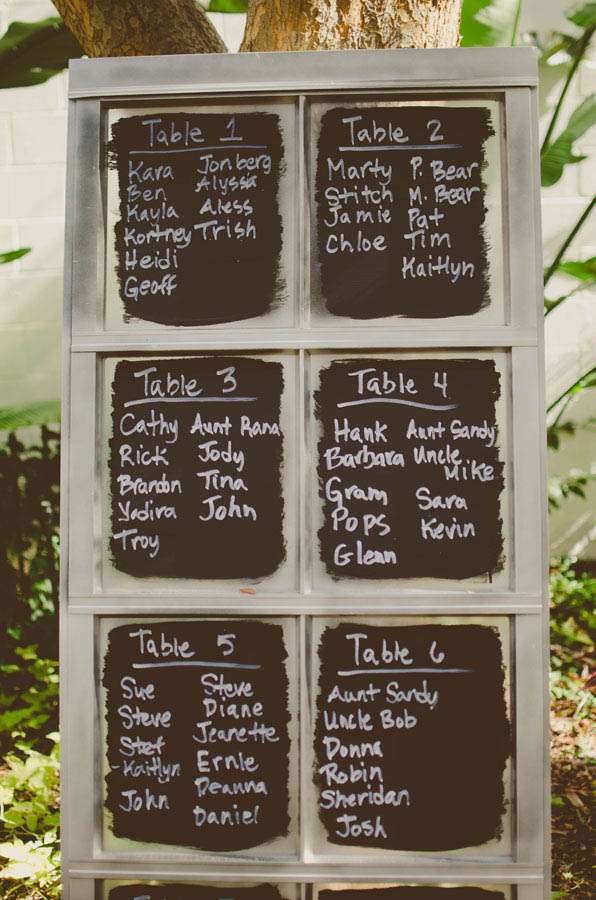 Table 1
Kara Jonberg
Ben Alyssa
Kayla Aless
Kortney Trish
Heidi
Geoff
Table 2
Marty P. Bear
Stitch M. Bear
Jamie Pat
Chloe Tim
Kaitlyn
Table 3
Cathy Aunt Rana
Rick Jody
Brandon Tina
Yadira John
Troy
Table 4
Hank Aunt Sandy
Barbara Uncle Mike
Gram Sara
Pops Kevin
Glenn
Table 5
Sue Steve
Steve Diane
Stef Jeanette
-Kaitlyn Ernie
John Deanna
Daniel
Table 6
Aunt Sandy
Uncle Bob
Donna
Robin
Sheridan
Josh